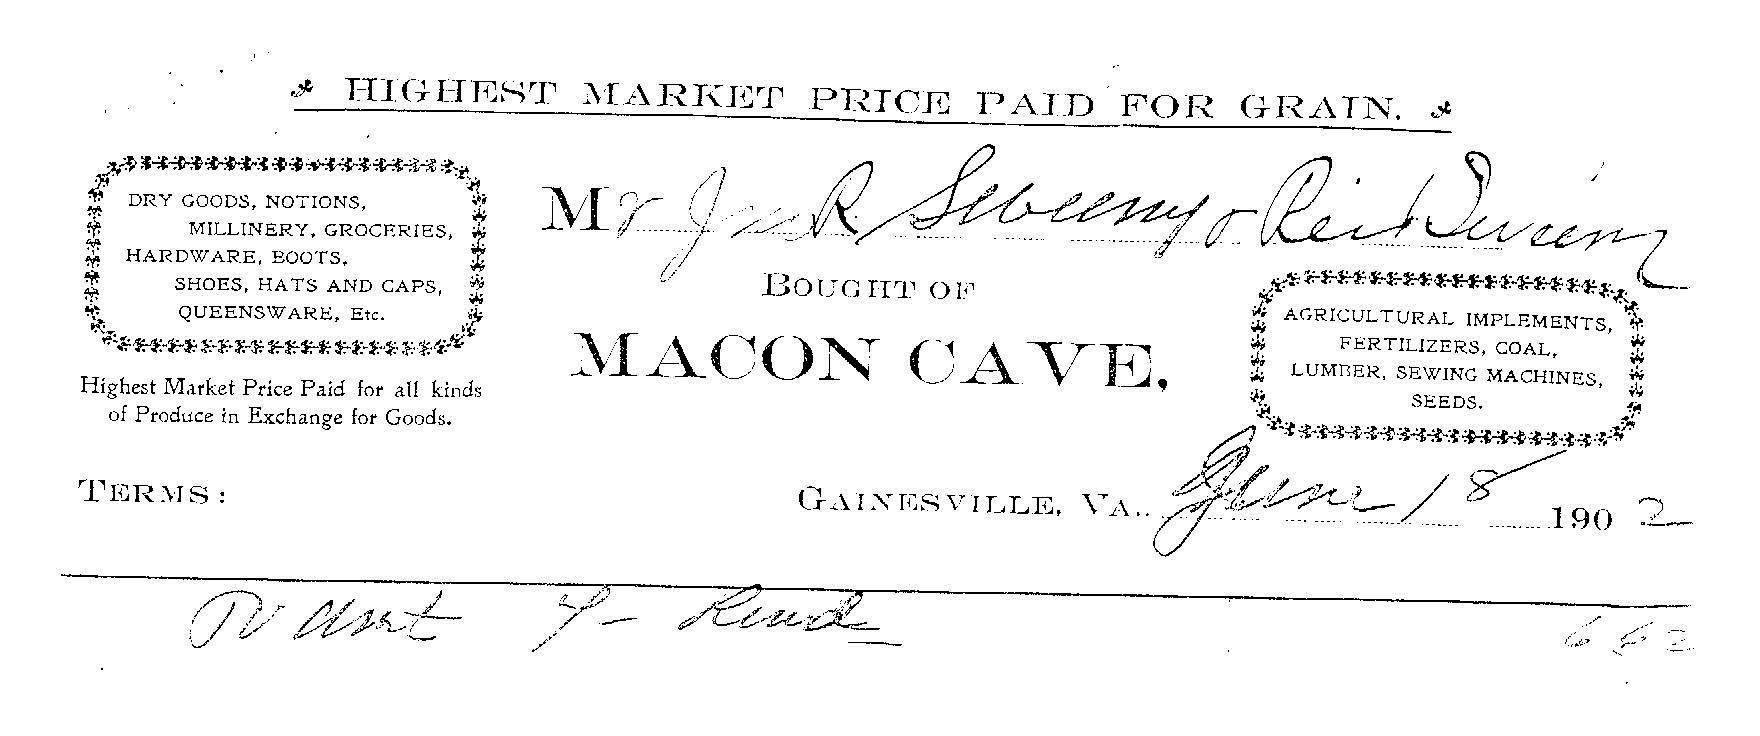 HIGHEST MARKET PRICE PAID FOR GRAIN.
DRY GOODS, NOTIONS,
MILLINERY, GROCERIES,
HARDWARE, BOOTS,
SHOES, HATS AND CAPS,
QUEENSWARE, Etc.
Highest Market Price Paid for all kinds
of Produce in Exchange for Goods.
Mr R Sweeny & Reid Sweeny
BOUGHT OF
MACON CAVE,
AGRICULTURAL IMPLEMENTS,
FERTILIZERS, COAL,
LUMBER, SEWING MACHINES,
SEEDS.
TERMS:
GAINESVILLE, VA., June 18 1902
To amt